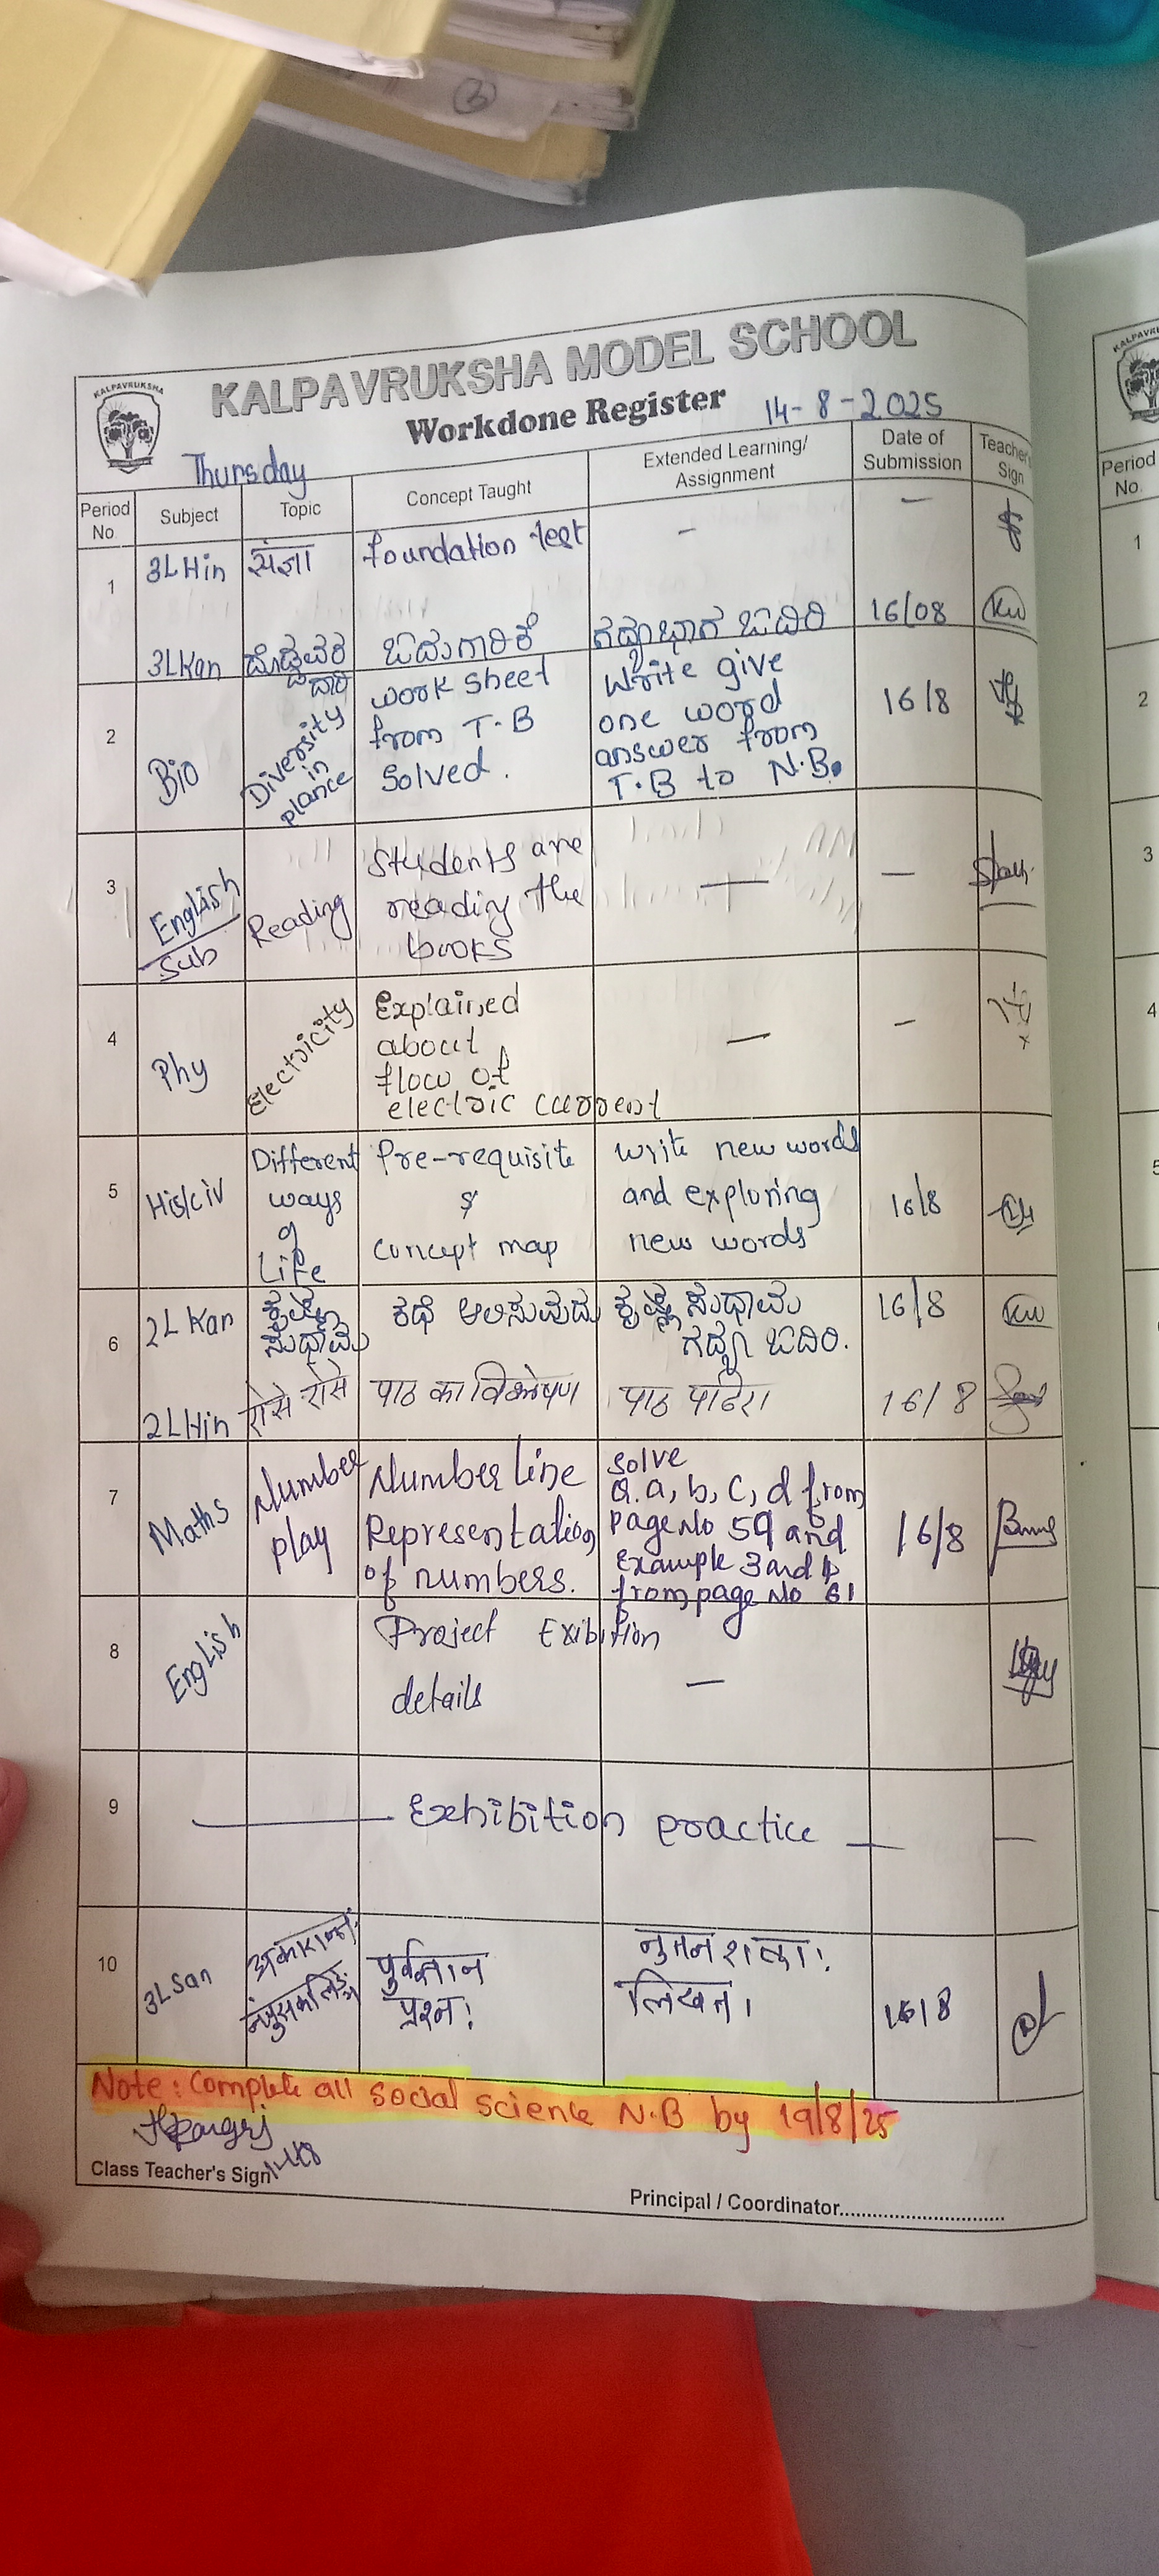 KALPAVRUKSHA
KALPAVRUKSHA MODEL SCHOOL
Workdone Register 14-8-2025
Thursday
Period No. Subject Topic Concept Taught Extended Learning/ Assignment Date of Submission Teacher's Sign
1 3L Hin संज्ञा foundation test - -
3L Kan ದೊಡ್ಡವರ ದಾರಿ ಓದುಗಾರಿಕೆ ಗದ್ಯಭಾಗ ಓದಿರಿ 16/08 KW
2 Bio Diversity in plance work sheet from T.B solved. Write give one word answer from T.B to N.B. 16/8
3 English/Sub Reading Students are reading the books — —
4 Phy Electricity Explained about flow of electric current — –
5 His/civ Different ways of Life Pre-requisite & concept map write new words and exploring new words 16/8
6 2L Kan ಕೃಷ್ಣ ಸುಧಾಮ ಕಥೆ ಆಲಿಸುವುದು ಕೃಷ್ಣ ಸುಧಾಮ ಗದ್ಯ ಓದಿರಿ. 16/8 KW
2L Hin पाठ का पाठ 16/8
7 Maths Number play Number line Representation of numbers. Solve Q. a, b, c, d from page No 59 and Example 3 and 4 from page No 61 16/8
8 English Project Exibition details —
9 Exhibition practice
10 3L San पुर्वज्ञान प्रश्न: 16/8
Note: Complete all social science N.B by 19/8/25
Class Teacher's Sign
Principal / Coordinator..............................
KALPAVRU
Period No.
1
2
3
4
5